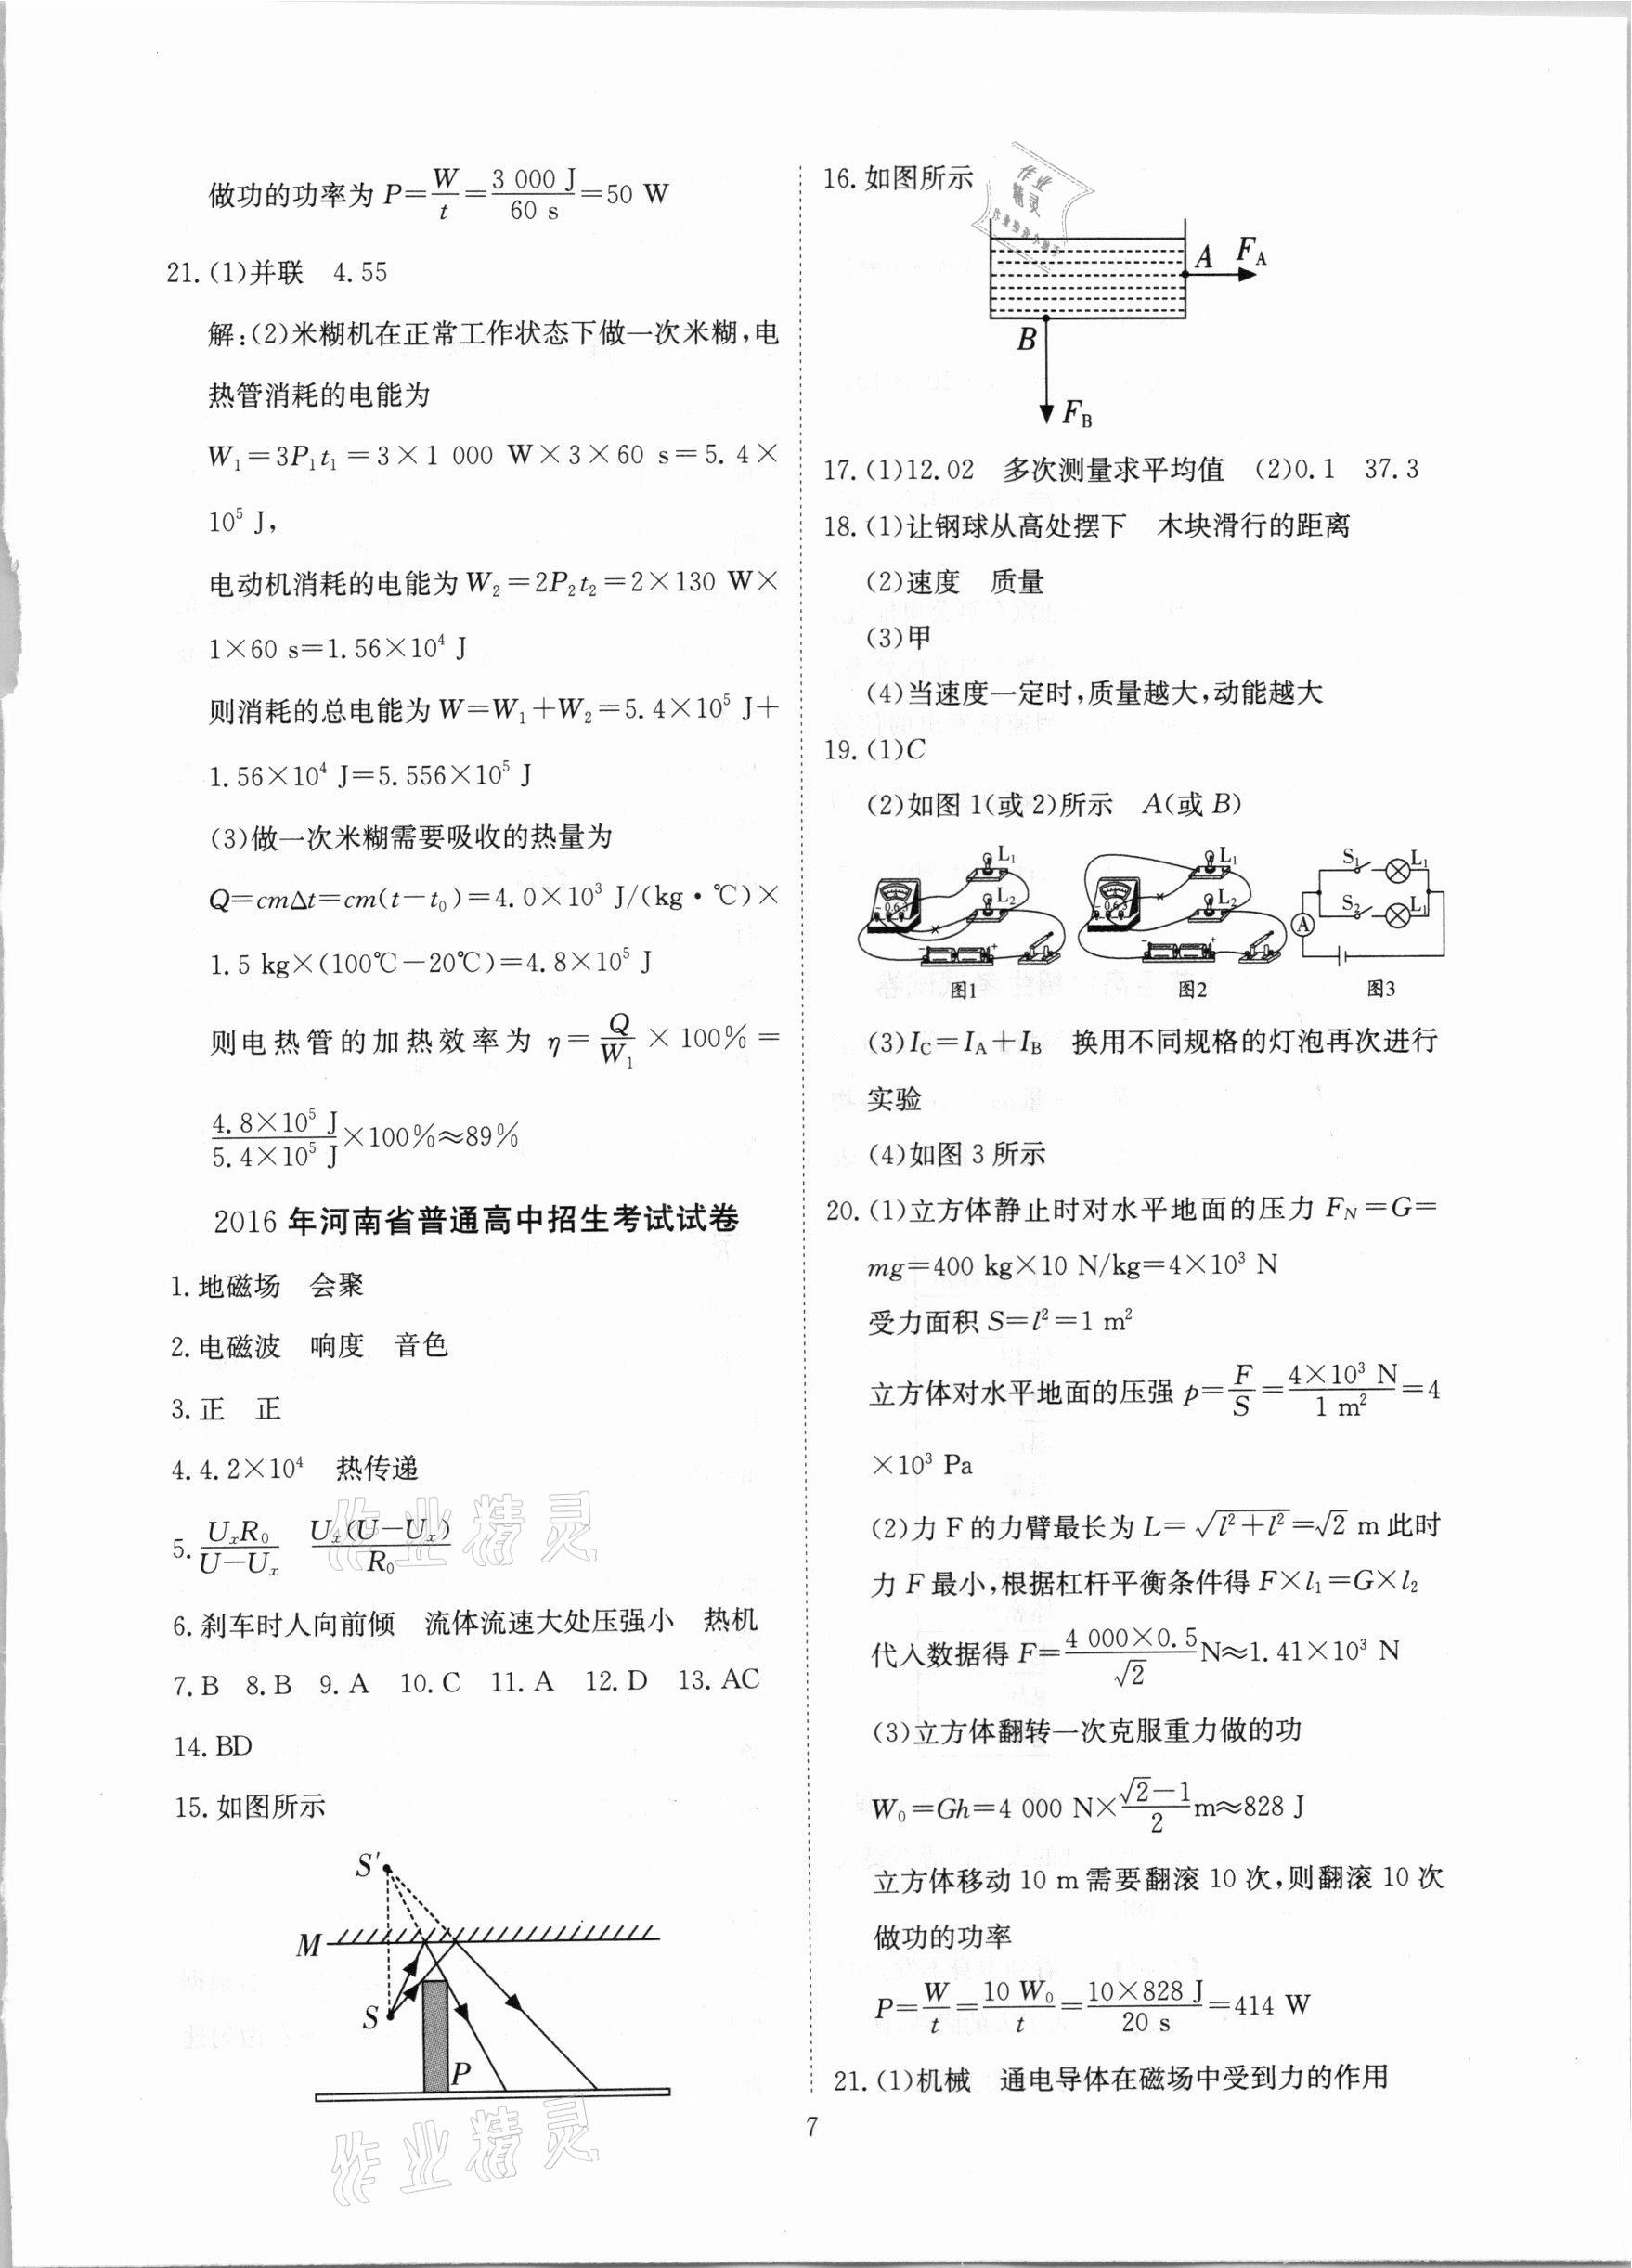 做功的功率为 P=W/t=3 000 J/60 s=50 W
21.(1)并联 4.55
解:(2)米糊机在正常工作状态下做一次米糊,电
热管消耗的电能为
W₁=3P₁t₁=3×1 000 W×3×60 s=5.4×
10⁵ J,
电动机消耗的电能为 W₂=2P₂t₂=2×130 W×
1×60 s=1.56×10⁴ J
则消耗的总电能为 W=W₁+W₂=5.4×10⁵ J+
1.56×10⁴ J=5.556×10⁵ J
(3)做一次米糊需要吸收的热量为
Q=cmΔt=cm(t-t₀)=4.0×10³ J/(kg·℃)×
1.5 kg×(100℃-20℃)=4.8×10⁵ J
则电热管的加热效率为 η=Q/W₁×100%=
4.8×10⁵ J/5.4×10⁵ J×100%≈89%
2016 年河南省普通高中招生考试试卷
1.地磁场 会聚
2.电磁波 响度 音色
3.正 正
4.4.2×10⁴ 热传递
5.UₓR₀/(U-Uₓ) Uₓ(U-Uₓ)/R₀
6.刹车时人向前倾 流体流速大处压强小 热机
7.B 8.B 9.A 10.C 11.A 12.D 13.AC
14.BD
15.如图所示
S′
M
S
P
作业精灵
作业精灵
16.如图所示
作业
精灵
A F_A
B
F_B
17.(1)12.02 多次测量求平均值 (2)0.1 37.3
18.(1)让钢球从高处摆下 木块滑行的距离
(2)速度 质量
(3)甲
(4)当速度一定时,质量越大,动能越大
19.(1)C
(2)如图 1(或 2)所示 A(或 B)
L₁ L₁ S₁ L₁
L₂ L₂ S₂ L₁
- 0.6 3
A
图1 图2 图3
(3)I_C=I_A+I_B 换用不同规格的灯泡再次进行
实验
(4)如图 3 所示
20.(1)立方体静止时对水平地面的压力 F_N=G=
mg=400 kg×10 N/kg=4×10³ N
受力面积 S=l²=1 m²
立方体对水平地面的压强 p=F/S=4×10³ N/1 m²=4
×10³ Pa
(2)力 F 的力臂最长为 L=√(l²+l²)=√2 m 此时
力 F 最小,根据杠杆平衡条件得 F×l₁=G×l₂
代入数据得 F=4 000×0.5/√2 N≈1.41×10³ N
(3)立方体翻转一次克服重力做的功
W₀=Gh=4 000 N×(√2-1)/2 m≈828 J
立方体移动 10 m 需要翻滚 10 次,则翻滚 10 次
做功的功率
P=W/t=10 W₀/t=10×828 J/20 s=414 W
21.(1)机械 通电导体在磁场中受到力的作用
7